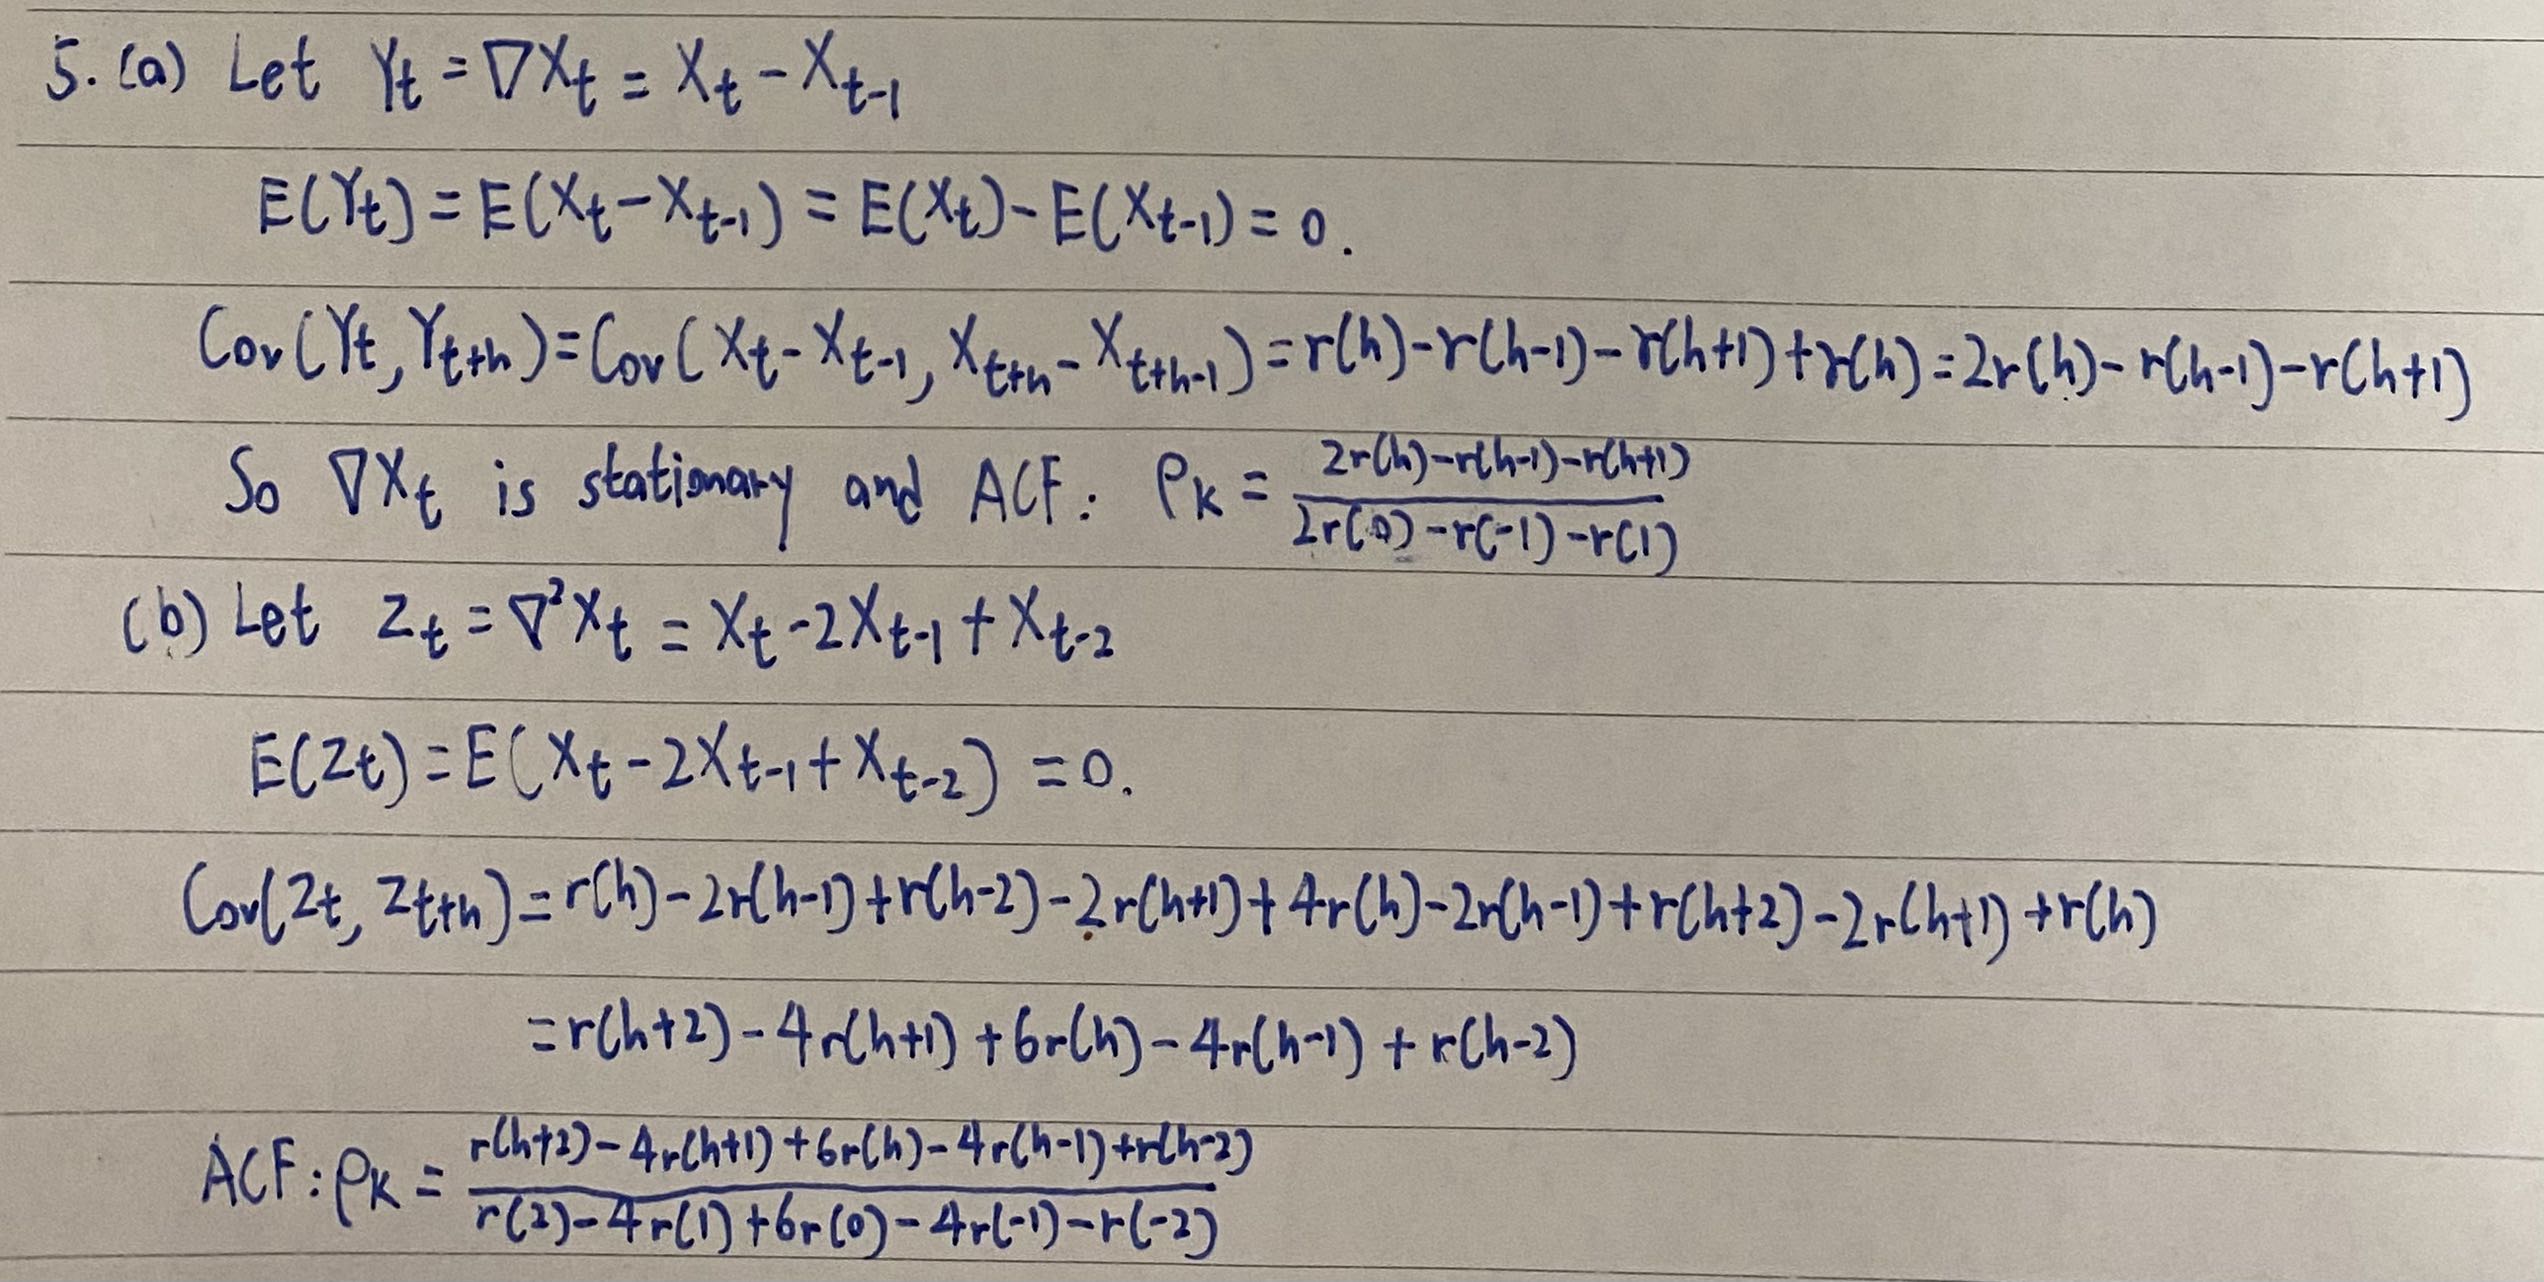 5. (a) Let Yt = ∇Xt = Xt - Xt-1
E(Yt) = E(Xt - Xt-1) = E(Xt) - E(Xt-1) = 0.
Cov(Yt, Yt+h) = Cov(Xt - Xt-1, Xt+h - Xt+h-1) = r(h) - r(h-1) - r(h+1) + r(h) = 2r(h) - r(h-1) - r(h+1)
So ∇Xt is stationary and ACF: ρk = (2r(h) - r(h-1) - r(h+1)) / (2r(0) - r(-1) - r(1))
(b) Let Zt = ∇²Xt = Xt - 2Xt-1 + Xt-2
E(Zt) = E(Xt - 2Xt-1 + Xt-2) = 0.
Cov(Zt, Zt+h) = r(h) - 2r(h-1) + r(h-2) - 2r(h+1) + 4r(h) - 2r(h-1) + r(h+2) - 2r(h+1) + r(h)
= r(h+2) - 4r(h+1) + 6r(h) - 4r(h-1) + r(h-2)
ACF: ρk = (r(h+2) - 4r(h+1) + 6r(h) - 4r(h-1) + r(h-2)) / (r(2) - 4r(1) + 6r(0) - 4r(-1) - r(-2))